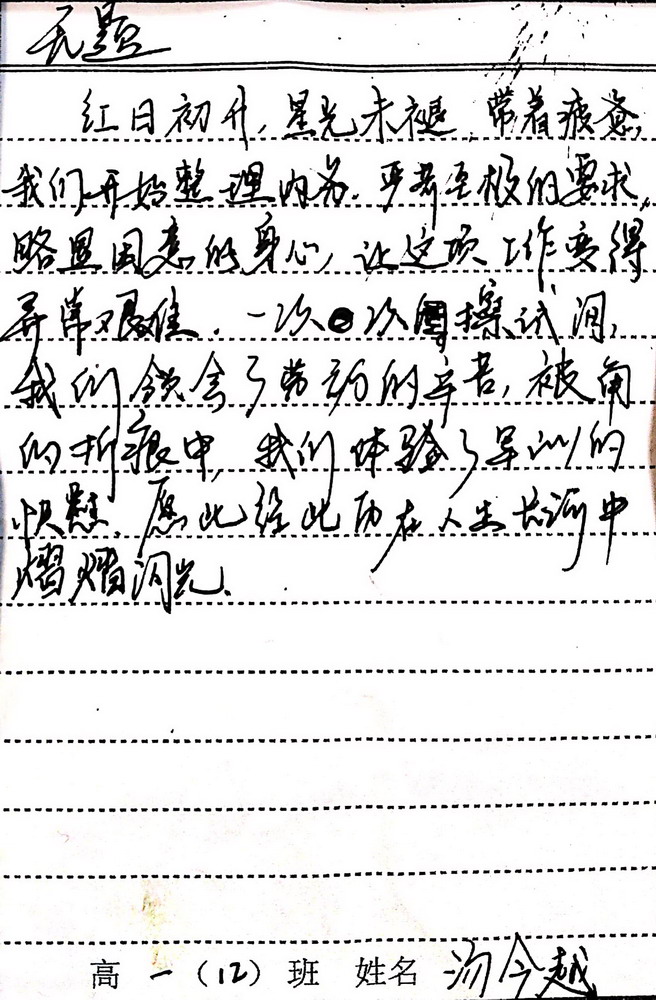 无题
红日初升，星光未褪，带着疲惫，
我们开始整理内务。严苛至极的要求，
略显困意的身心，让这项工作变得
异常艰难。一次次擦拭间，
我们领会了劳动的辛苦，被角
的折痕中，我们体验了军训的
快慰。愿此经此历在人生长河中
熠熠闪光。
高一（12）班 姓名 汤今越